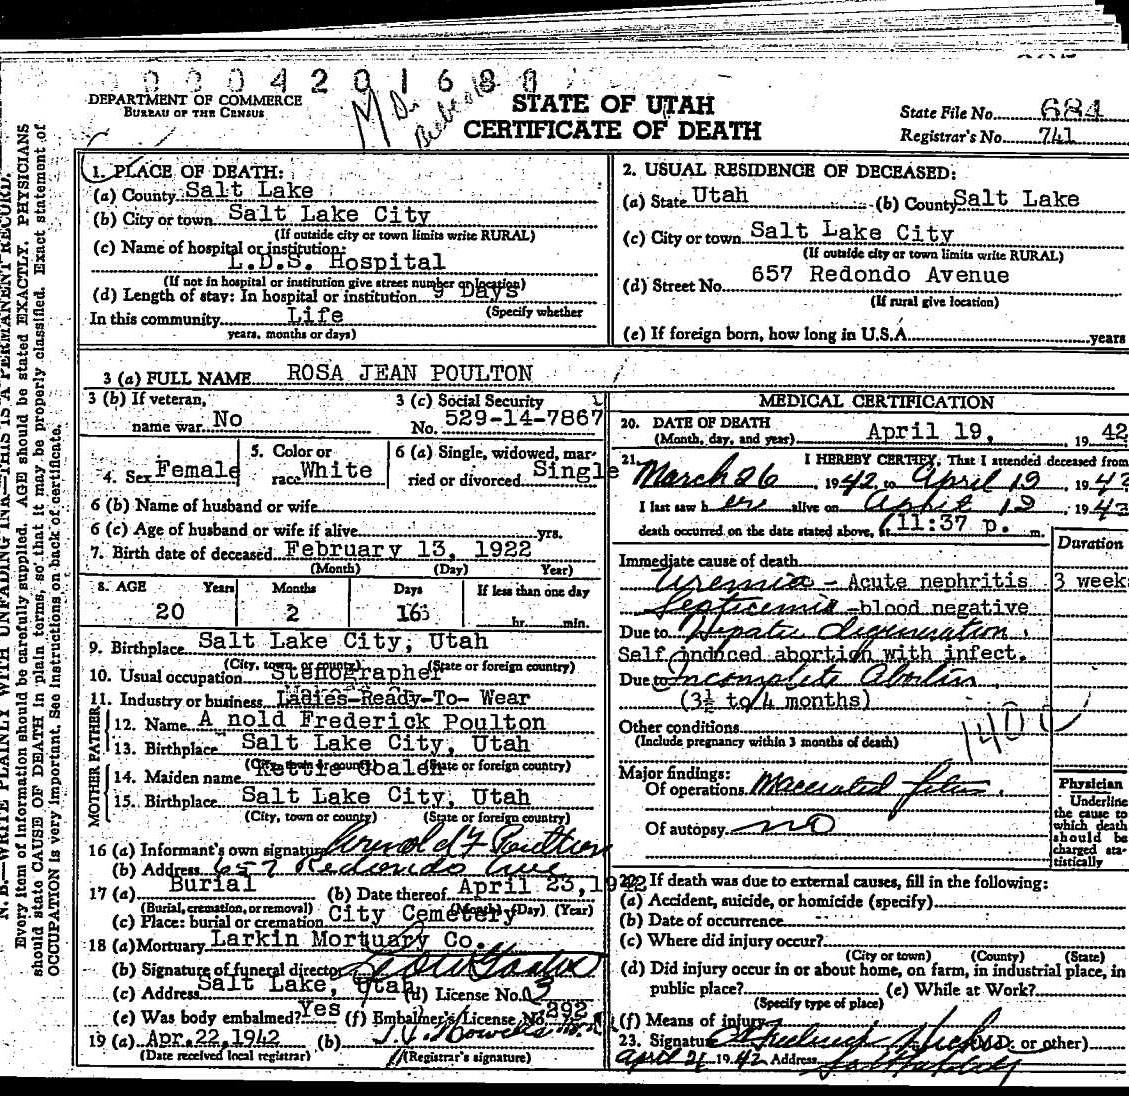 0 0 0 0 4 2 0 1 6 8
DEPARTMENT OF COMMERCE
BUREAU OF THE CENSUS
STATE OF UTAH
CERTIFICATE OF DEATH
State File No. 684
Registrar's No. 741
N. B.—WRITE PLAINLY WITH UNFADING INK—THIS IS A PERMANENT RECORD.
Every item of information should be carefully supplied. AGE should be stated EXACTLY. PHYSICIANS
should state CAUSE OF DEATH in plain terms, so that it may be properly classified. Exact statement of
OCCUPATION is very important. See instructions on back of certificate.
1. PLACE OF DEATH:
(a) County Salt Lake
(b) City or town Salt Lake City
(If outside city or town limits write RURAL)
(c) Name of hospital or institution:
L.D.S. Hospital
(If not in hospital or institution give street number or location)
(d) Length of stay: In hospital or institution 9 Days
(Specify whether
In this community Life
years, months or days)
2. USUAL RESIDENCE OF DECEASED:
(a) State Utah (b) County Salt Lake
(c) City or town Salt Lake City
(If outside city or town limits write RURAL)
(d) Street No. 657 Redondo Avenue
(If rural give location)
(e) If foreign born, how long in U.S.A. years
3 (a) FULL NAME ROSA JEAN POULTON
3 (b) If veteran,
name war No
3 (c) Social Security
No. 529-14-7867
4. Sex Female
5. Color or
race White
6 (a) Single, widowed, mar-
ried or divorced Single
6 (b) Name of husband or wife
6 (c) Age of husband or wife if alive yrs.
7. Birth date of deceased February 13, 1922
(Month) (Day) Year)
8. AGE Years Months Days If less than one day
20 2 hr. min.
9. Birthplace Salt Lake City, Utah
(City, town, or county) (State or foreign country)
10. Usual occupation Stenographer
11. Industry or business Ladies-Ready-To- Wear
MOTHER FATHER
12. Name A nold Frederick Poulton
13. Birthplace Salt Lake City, Utah
(City, town or county) (State or foreign country)
14. Maiden name
15. Birthplace Salt Lake City, Utah
(City, town or county) (State or foreign country)
16 (a) Informant's own signature Arnold F Poulton
(b) Address 657 Redondo Ave
17 (a) Burial (b) Date thereof April 23, 1942
(Burial, cremation, or removal) (Month) (Day) (Year)
(c) Place: burial or cremation City Cemetery
18 (a) Mortuary Larkin Mortuary Co.
(b) Signature of funeral director
(c) Address Salt Lake, Utah (d) License No.
(e) Was body embalmed? Yes (f) Embalmer's License No. 292
19 (a) Apr. 22, 1942 (b)
(Date received local registrar) (Registrar's signature)
MEDICAL CERTIFICATION
20. DATE OF DEATH
(Month, day, and year) April 19, 19 42
21. I HEREBY CERTIFY, That I attended deceased from
March 26, 1942, to April 19, 1942
I last saw h er alive on April 19, 1942
death occurred on the date stated above, at 11:37 p. m.
Duration
Immediate cause of death
Uremia - Acute nephritis 3 week
Septicemia -blood negative
Due to Hepatic degeneration.
Self induced abortion with infect.
Due to Incomplete Abortion.
(3½ to 4 months)
Other conditions
(Include pregnancy within 3 months of death)
140
Major findings:
Of operations Macerated fetus.
Of autopsy no
Physician
Underline
the cause to
which death
should be
charged sta-
tistically
22. If death was due to external causes, fill in the following:
(a) Accident, suicide, or homicide (specify)
(b) Date of occurrence
(c) Where did injury occur?
(City or town) (County) (State)
(d) Did injury occur in or about home, on farm, in industrial place, in
public place? (e) While at Work?
(Specify type of place)
(f) Means of injury
23. Signature (M.D. or other)
April 21 1942 Address Salt Lake City